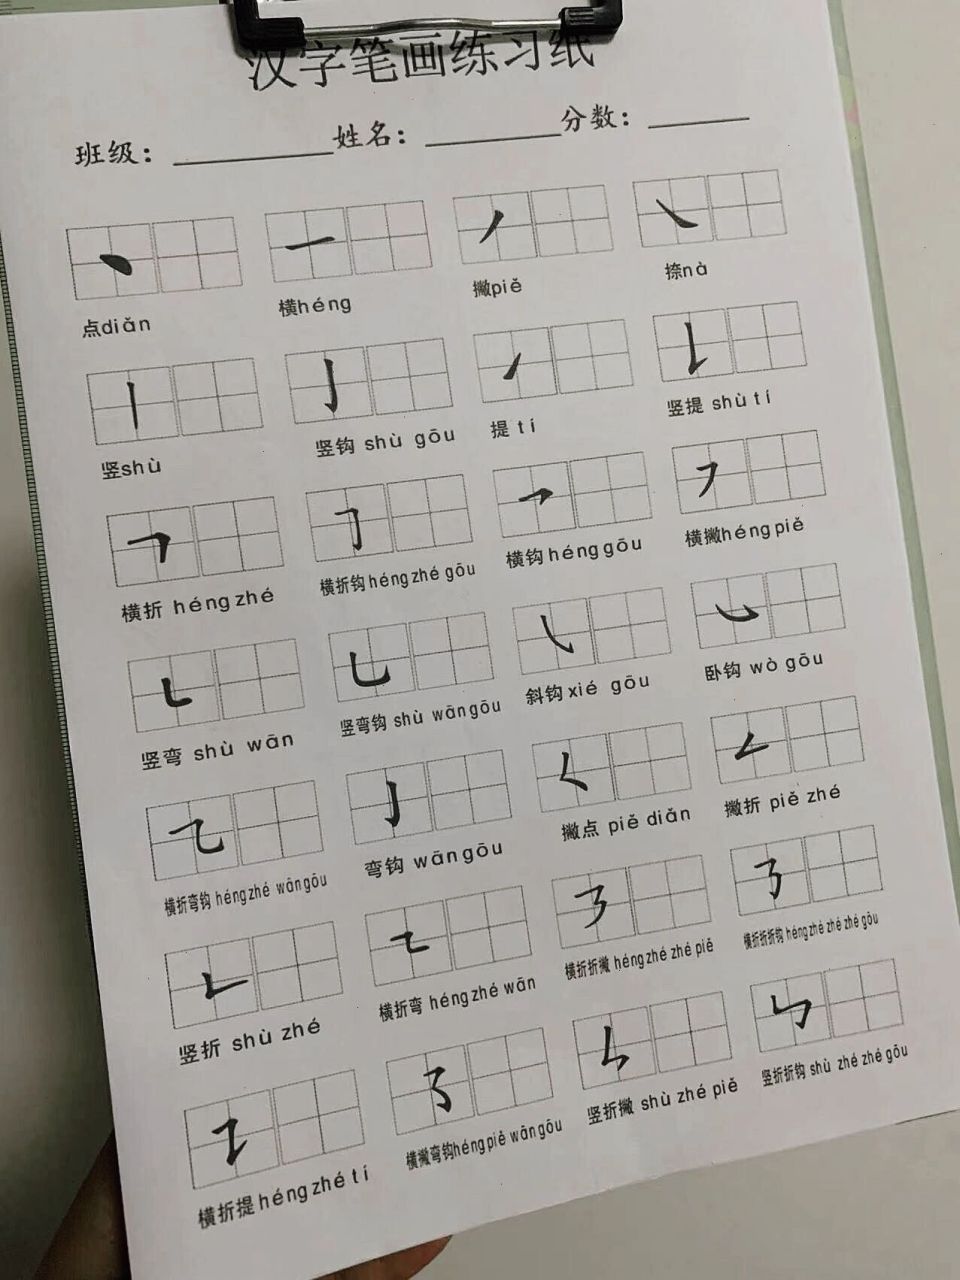 汉字笔画练习纸
班级：________ 姓名：________ 分数：________
点diǎn 横héng 撇piě 捺nà
竖shù 竖钩 shù gōu 提 tí 竖提 shù tí
横折 héng zhé 横折钩 héng zhé gōu 横钩 héng gōu 横撇héng piě
竖弯 shù wān 竖弯钩 shù wān gōu 斜钩 xié gōu 卧钩 wò gōu
横折弯钩 héng zhé wān gōu 弯钩 wān gōu 撇点 piě diǎn 撇折 piě zhé
竖折 shù zhé 横折弯 héng zhé wān 横折折撇 héng zhé zhé piě 横折折折钩 héng zhé zhé zhé gōu
横折提 héng zhé tí 横撇弯钩héng piě wān gōu 竖折撇 shù zhé piě 竖折折钩 shù zhé zhé gōu